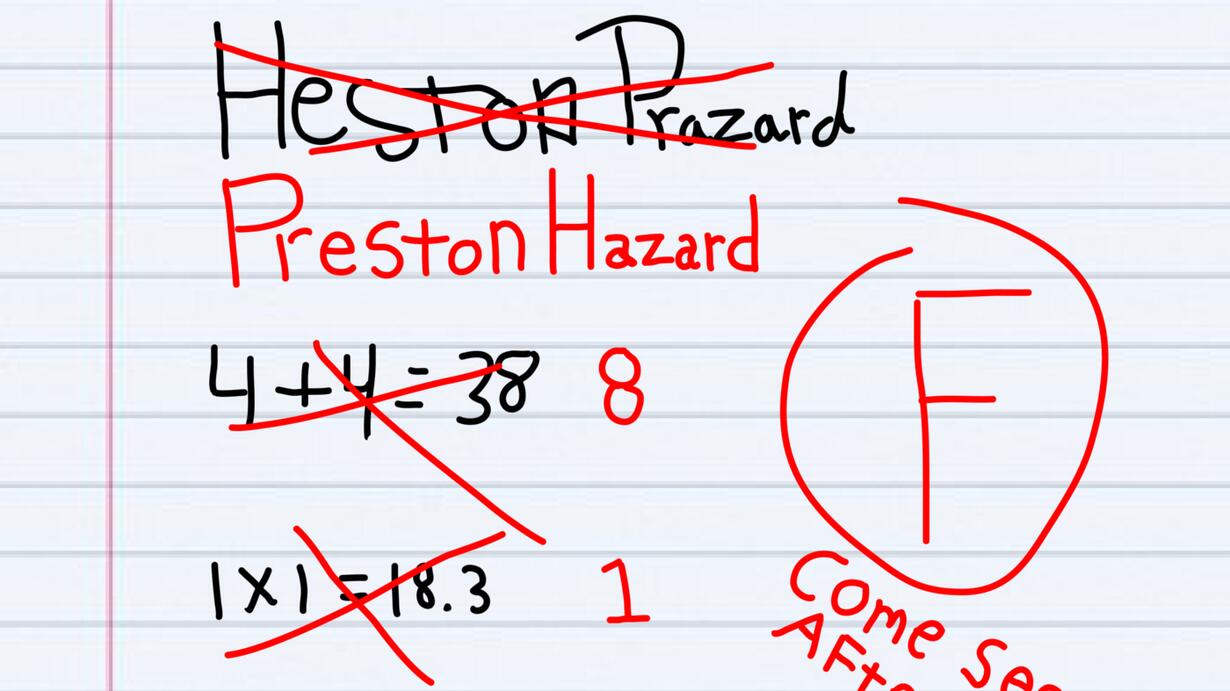 Heston Prazard
Preston Hazard
4 + 4 = 38 8
F
1 x 1 = 18.3 1
Come See
AFte